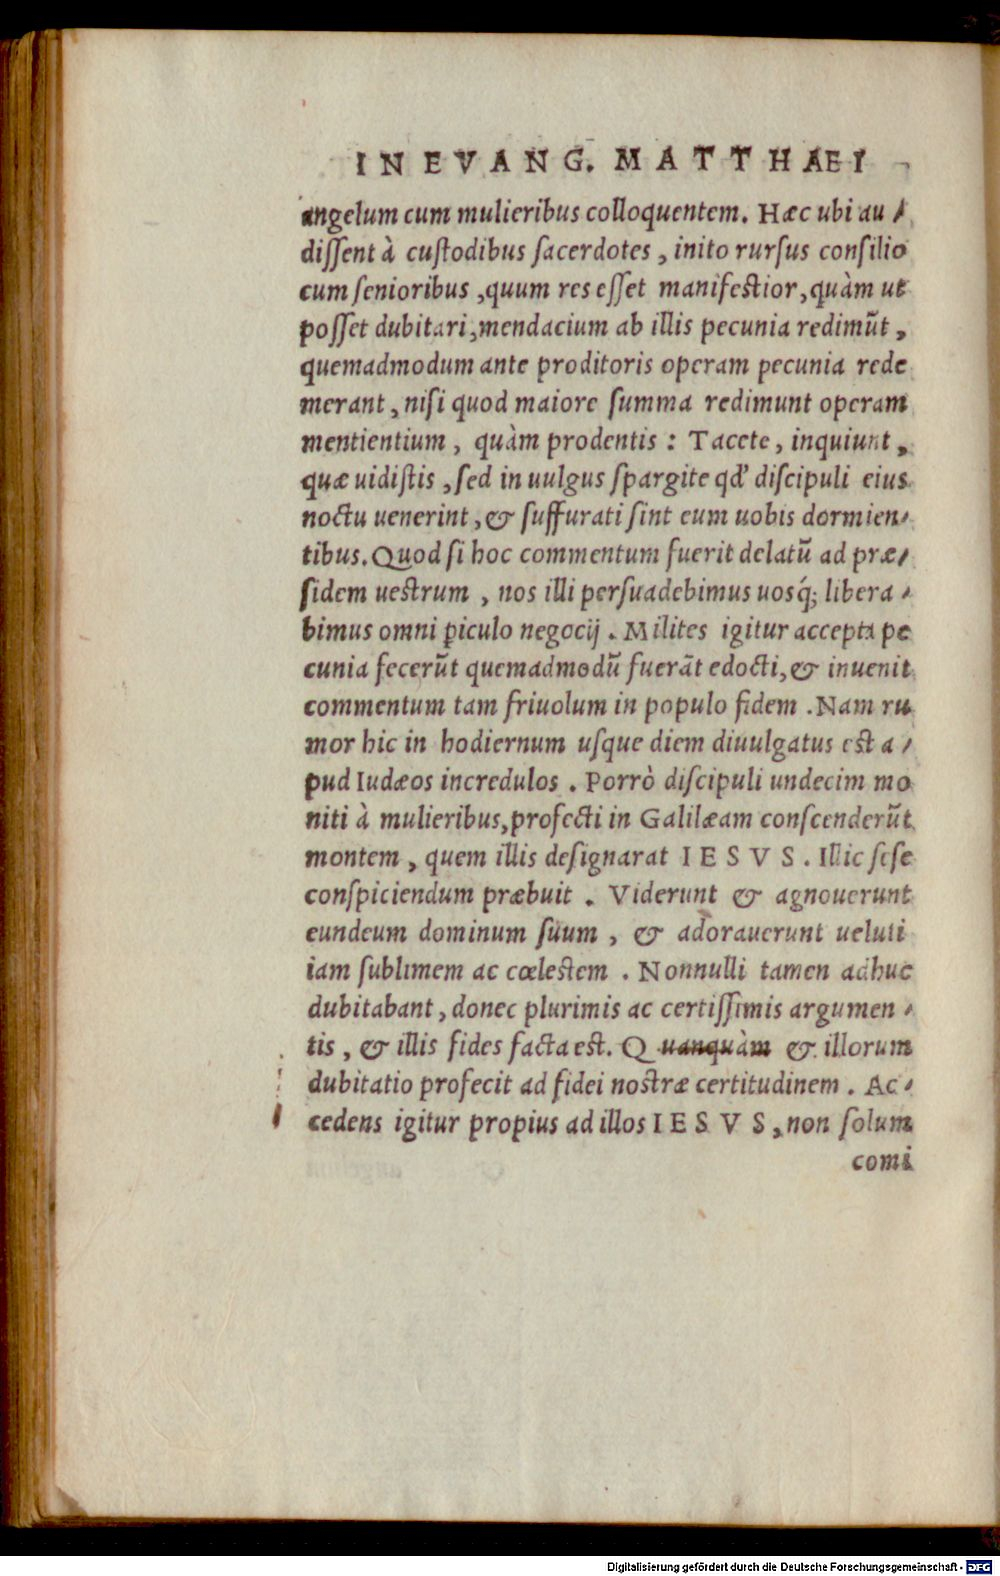 IN EVANG. MATTHÆI
angelum cum mulieribus colloquentem. Hæc ubi au⸗
dissent à custodibus sacerdotes, inito rursus consilio
cum senioribus, quum res esset manifestior, quàm ut
posset dubitari, mendacium ab illis pecunia redimūt,
quemadmodum ante proditoris operam pecunia rede
merant, nisi quod maiore summa redimunt operam
mentientium, quàm prodentis: Tacete, inquiunt,
quæ uidistis, sed in uulgus spargite qđ discipuli eius
noctu uenerint, & suffurati sint eum uobis dormien⸗
tibus. Quod si hoc commentum fuerit delatū ad præ⸗
sidem uestrum, nos illi persuadebimus uosq́; libera⸗
bimus omni ꝑiculo negocij. Milites igitur accepta pe
cunia fecerūt quemadmodū fuerāt edocti, & inuenit
commentum tam friuolum in populo fidem. Nam ru
mor hic in hodiernum usque diem diuulgatus est a⸗
pud Iudæos incredulos. Porrò discipuli undecim mo
niti à mulieribus, profecti in Galilæam conscenderūt
montem, quem illis designarat IESVS. Illic sese
conspiciendum præbuit. Viderunt & agnouerunt
eundeum dominum suum, & adorauerunt ueluti
iam sublimem ac cœlestem. Nonnulli tamen adhuc
dubitabant, donec plurimis ac certissimis argumen⸗
tis, & illis fides facta est. Quanquàm & illorum
dubitatio profecit ad fidei nostræ certitudinem. Ac⸗
cedens igitur propius ad illos IESVS, non solum
comi
Digitalisierung gefördert durch die Deutsche Forschungsgemeinschaft - DFG